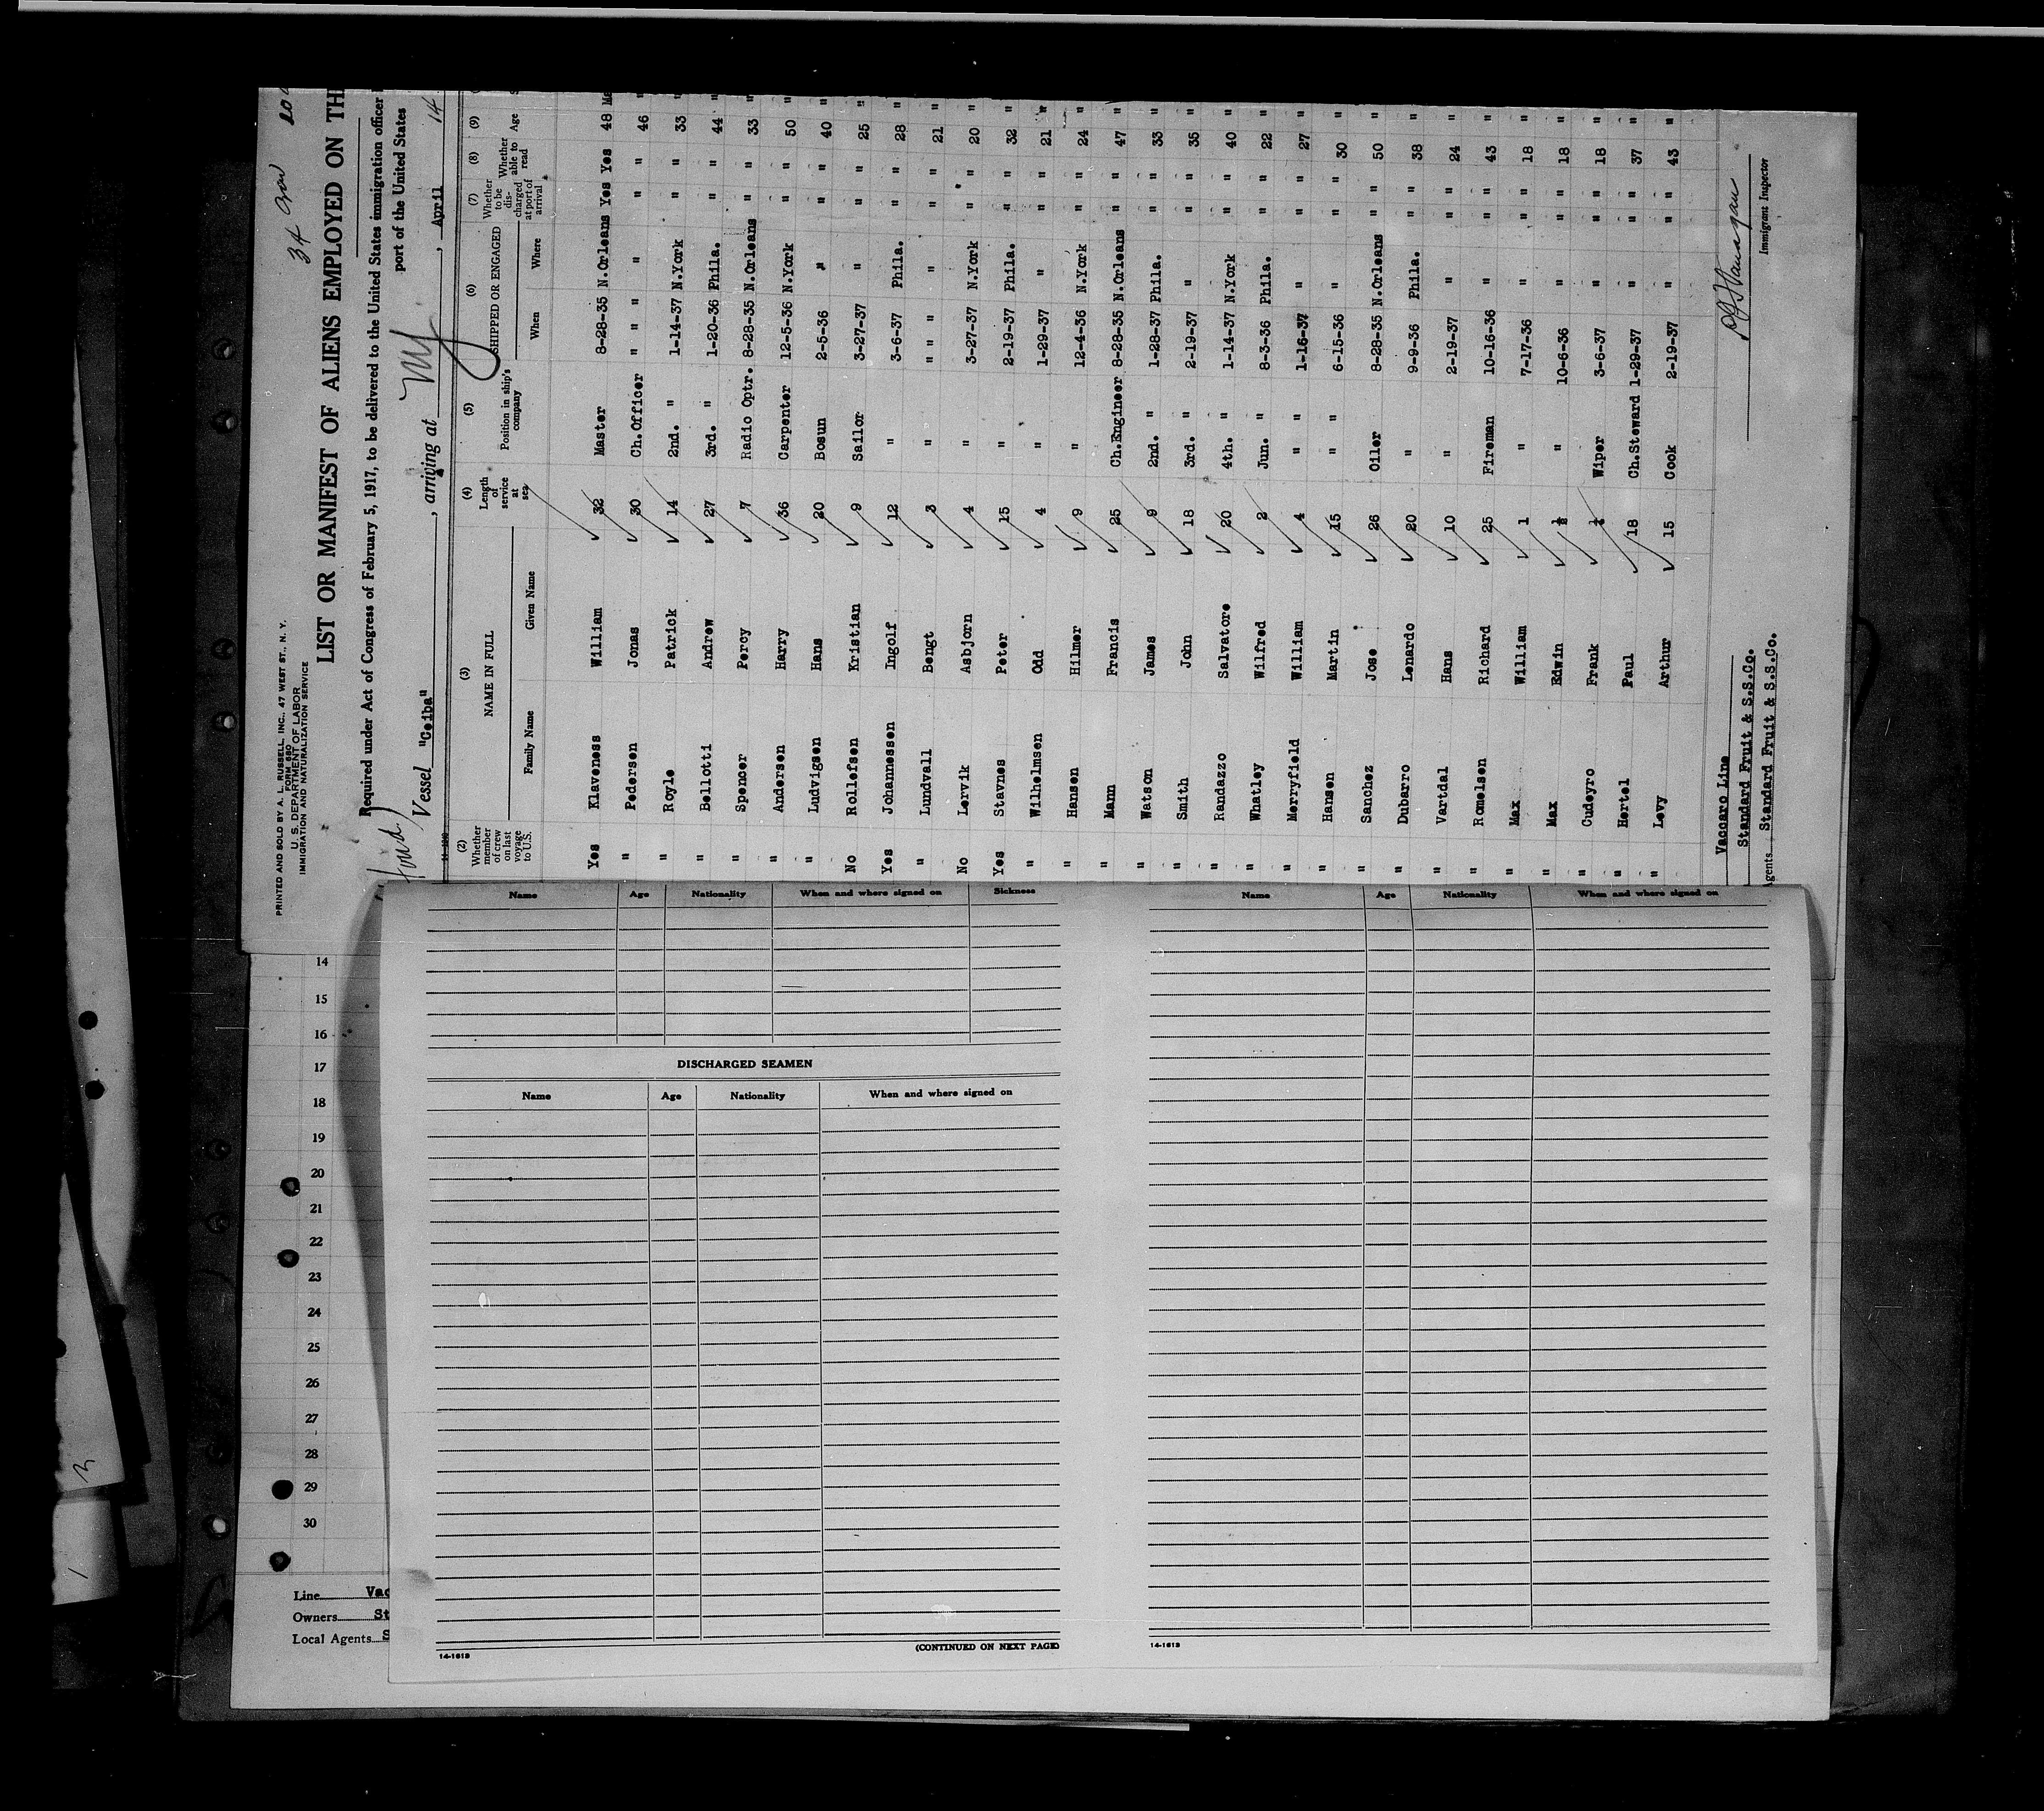 34
PRINTED AND SOLD BY A. L. RUSSELL, INC., 47 WEST ST., N. Y.
FORM 680
U. S. DEPARTMENT OF LABOR
IMMIGRATION AND NATURALIZATION SERVICE
LIST OR MANIFEST OF ALIENS EMPLOYED ON TH
Required under Act of Congress of February 5, 1917, to be delivered to the United States immigration officer
port of the United States
Vessel "Ceiba", arriving at NY, April 14
(2) Whether member of crew on last voyage to U.S. (3) NAME IN FULL Family Name Given Name (4) Length of service at sea (5) Position in ship's company (6) SHIPPED OR ENGAGED When Where (7) Whether to be discharged at port of arrival (8) Whether able to read (9) Age
Yes Klaveness William 32 Master 8-28-35 N.Orleans Yes Yes 48 Ma
" Pedersen Jonas 30 Ch.Officer " " " " " " 46 "
" Royle Patrick 14 2nd. " 1-14-37 N.York " " 33 "
" Bellotti Andrew 27 3rd. " 1-20-36 Phila. " " 44 "
" Spencer Percy 7 Radio Optr. 8-28-35 N.Orleans " " 33 "
" Andersen Harry 36 Carpenter 12-5-36 N.York " " 50 "
" Ludvigsen Hans 20 Bosun 2-5-36 " " " 40 "
No Rollefsen Kristian 9 Sailor 3-27-37 " " " 25 "
Yes Johannessen Ingolf 12 " 3-6-37 Phila. " " 28 "
" Lundvall Bengt 3 " " " " " " 21 "
No Lervik Asbjorn 4 " 3-27-37 N.York " " 20 "
Yes Stavnes Peter 15 " 2-19-37 Phila. " " 32 "
" Wilhelmsen Odd 4 " 1-29-37 " " " 21 "
" Hansen Hilmer 9 " 12-4-36 N.York " " 24 "
" Mann Francis 25 Ch.Engineer 8-28-35 N.Orleans " " 47 "
" Watson James 9 2nd. " 1-28-37 Phila. " " 33 "
" Smith John 18 3rd. " 2-19-37 " " " 35 "
" Randazzo Salvatore 20 4th. " 1-14-37 N.York " " 40 "
" Whatley Wilfred 2 Jun. " 8-3-36 Phila. " " 22 "
" Merryfield William 4 " " 1-16-37 " " " 27 "
" Hansen Martin 15 " " 6-15-36 " " " 30 "
" Sanchez Jose 26 Oiler 8-28-35 N.Orleans " " 50 "
" Dubarro Lenardo 20 " 9-9-36 Phila. " " 38 "
" Vartdal Hans 10 " 2-19-37 " " " 24 "
" Romelsen Richard 25 Fireman 10-16-36 " " " 43 "
" Max William 1 " 7-17-36 " " " 18 "
" Max Edwin " 10-6-36 " " " 18 "
" Cudeyro Frank Wiper 3-6-37 " " " 18 "
" Hertel Paul 18 Ch.Steward 1-29-37 " " " 37 "
" Levy Arthur 15 Cook 2-19-37 " " " 43 "
Vaccaro Line
Standard Fruit & S.S.Co.
Agents Standard Fruit & S.S.Co.
Immigrant Inspector
Name Age Nationality When and where signed on Sickness
DISCHARGED SEAMEN
Name Age Nationality When and where signed on
(CONTINUED ON NEXT PAGE)
14-1613
Name Age Nationality When and where signed on
14-1613
14
15
16
17
18
19
20
21
22
23
24
25
26
27
28
29
30
Line Vac
Owners St
Local Agents S
3
1